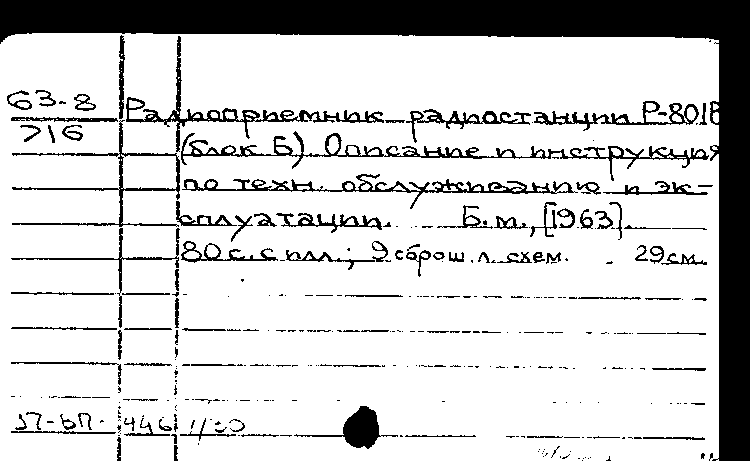 63-8
716
Радиоприемник радиостанции Р-801В
(блок Б). Описание и инструкция
по техн. обслуживанию и эк-
сплуатации. Б.м., [1963].
80 с. с илл.; 9 сброш. л. схем. 29 см.
446